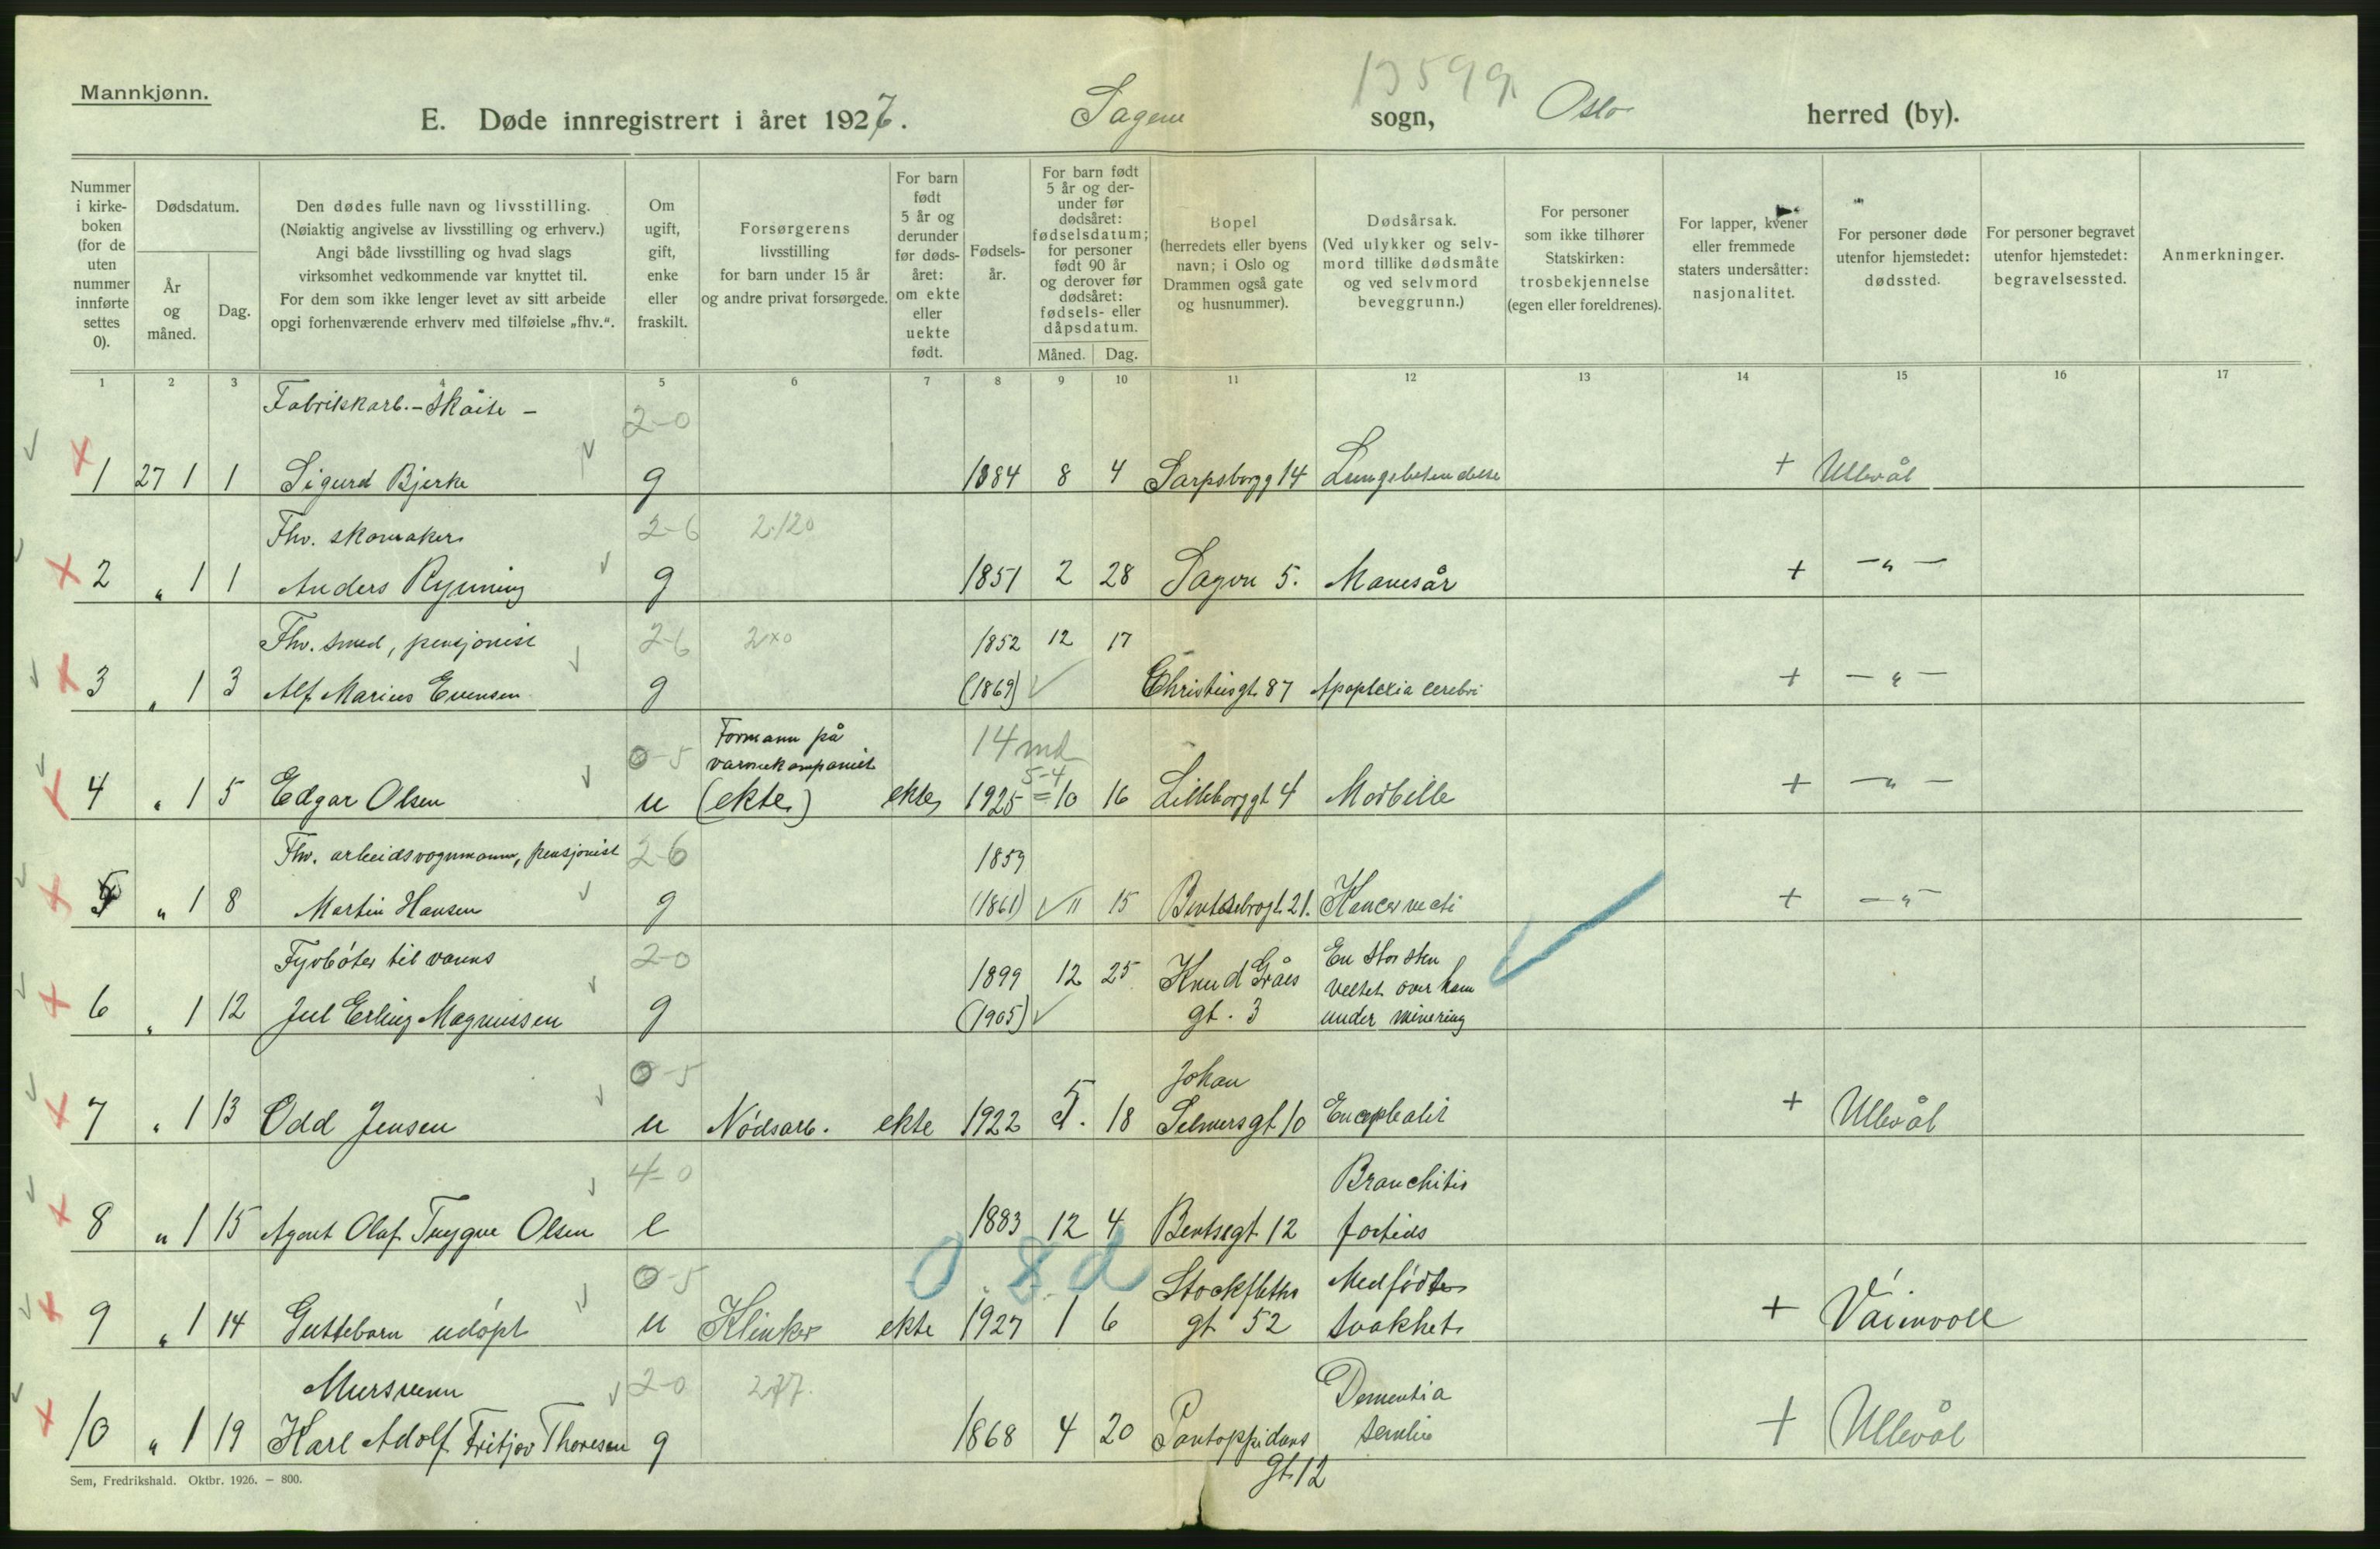 Mannkjønn.
13599
E. Døde innregistrert i året 1927. Sagene sogn, Oslo herred (by).
Nummer i kirkeboken (for de uten nummer innførte settes 0).
Dødsdatum.
År og måned.
Dag.
Den dødes fulle navn og livsstilling.
(Nøiaktig angivelse av livsstilling og erhverv.)
Angi både livsstilling og hvad slags
virksomhet vedkommende var knyttet til.
For dem som ikke lenger levet av sitt arbeide
opgi forhenværende erhverv med tilføielse „fhv.".
Om ugift, gift, enke eller fraskilt.
Forsørgerens
livsstilling
for barn under 15 år
og andre privat forsørgede.
For barn født 5 år og derunder før dødsåret: om ekte eller uekte født.
Fødselsår.
For barn født 5 år og derunder før dødsåret: fødselsdatum; for personer født 90 år og derover før dødsåret: fødsels- eller dåpsdatum.
Måned. Dag.
Bopel
(herredets eller byens
navn; i Oslo og
Drammen også gate
og husnummer).
Dødsårsak.
(Ved ulykker og selvmord tillike dødsmåte
og ved selvmord
beveggrunn.)
For personer
som ikke tilhører
Statskirken:
trosbekjennelse
(egen eller foreldrenes).
For lapper, kvener
eller fremmede
staters undersåtter:
nasjonalitet.
For personer døde
utenfor hjemstedet:
dødssted.
For personer begravet
utenfor hjemstedet:
begravelsessted.
Anmerkninger.
1 2 3 4 5 6 7 8 9 10 11 12 13 14 15 16 17
Fabrikkarb. - Skøite - 2-0
1 27 1 1 Sigurd Bjerke g 1884 8 4 Sarpsborgg 14 Lungebetendelse + Ullevål
Fhv. skomaker 2-6 2120
2 " 1 1 Anders Rynning g 1851 2 28 Sagvn 5. Mavesår + - " -
Fhv. smed, pensjonist 2-6 2x0 1852 12 17
3 " 1 3 Alf Marius Evensen g (1869) Christiesgt. 87 Apoplexia cerebri + - " -
0-5 Formann på varmekompaniet 14 md
5-4
4 " 1 5 Edgar Olsen u (ekte) ekte 1925 = 10 16 Lilleborggt 4 Morbille + - " -
Fhv. arbeidsvognmann, pensjonist 2-6 1859
5 " 1 8 Martin Hansen g (1861) 11 15 Bentsebrogt. 21. Kancer recti + - " -
Fyrbøter til vanns 2-0 1899 12 25 Knud Gråes En stor sten veltet over ham
6 " 1 12 Jul Erling Magnussen g (1905) gt. 3 under minering
0-5 Johan
7 " 1 13 Odd Jensen u Nødsarb. ekte 1922 5. 18 Selmersgt 10 Encephalit + Ullevål
4-0 Bronchitis
8 " 1 15 Agent Olaf Trygve Olsen e 1883 12 4 Bentsegt 12 foetida
0-5 0. 8. d Stockfleths Medfødte
9 " 1 14 Guttebarn udøpt u Klinker ekte 1927 1 6 gt 52 svakhet +
Mursvenn 2-0 277. Dementia
10 " 1 19 Karl Adolf Fritjov Thoresen g 1868 4 20 Pontoppidans senilis + Ullevål
gt. 12
Sem, Fredrikshald. Oktbr. 1926. - 800.